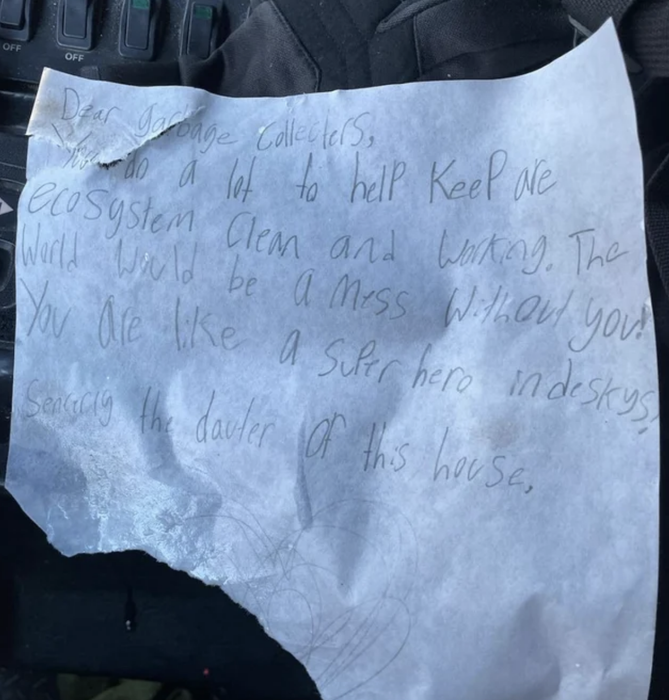 OFF
OFF
Dear garbage Collecters,
You do a lot to help KeeP are
ecosystem Clean and working. The
World Would be a mess without you!
You are like a super hero indeskys!
Sencirly the dauter of this house,